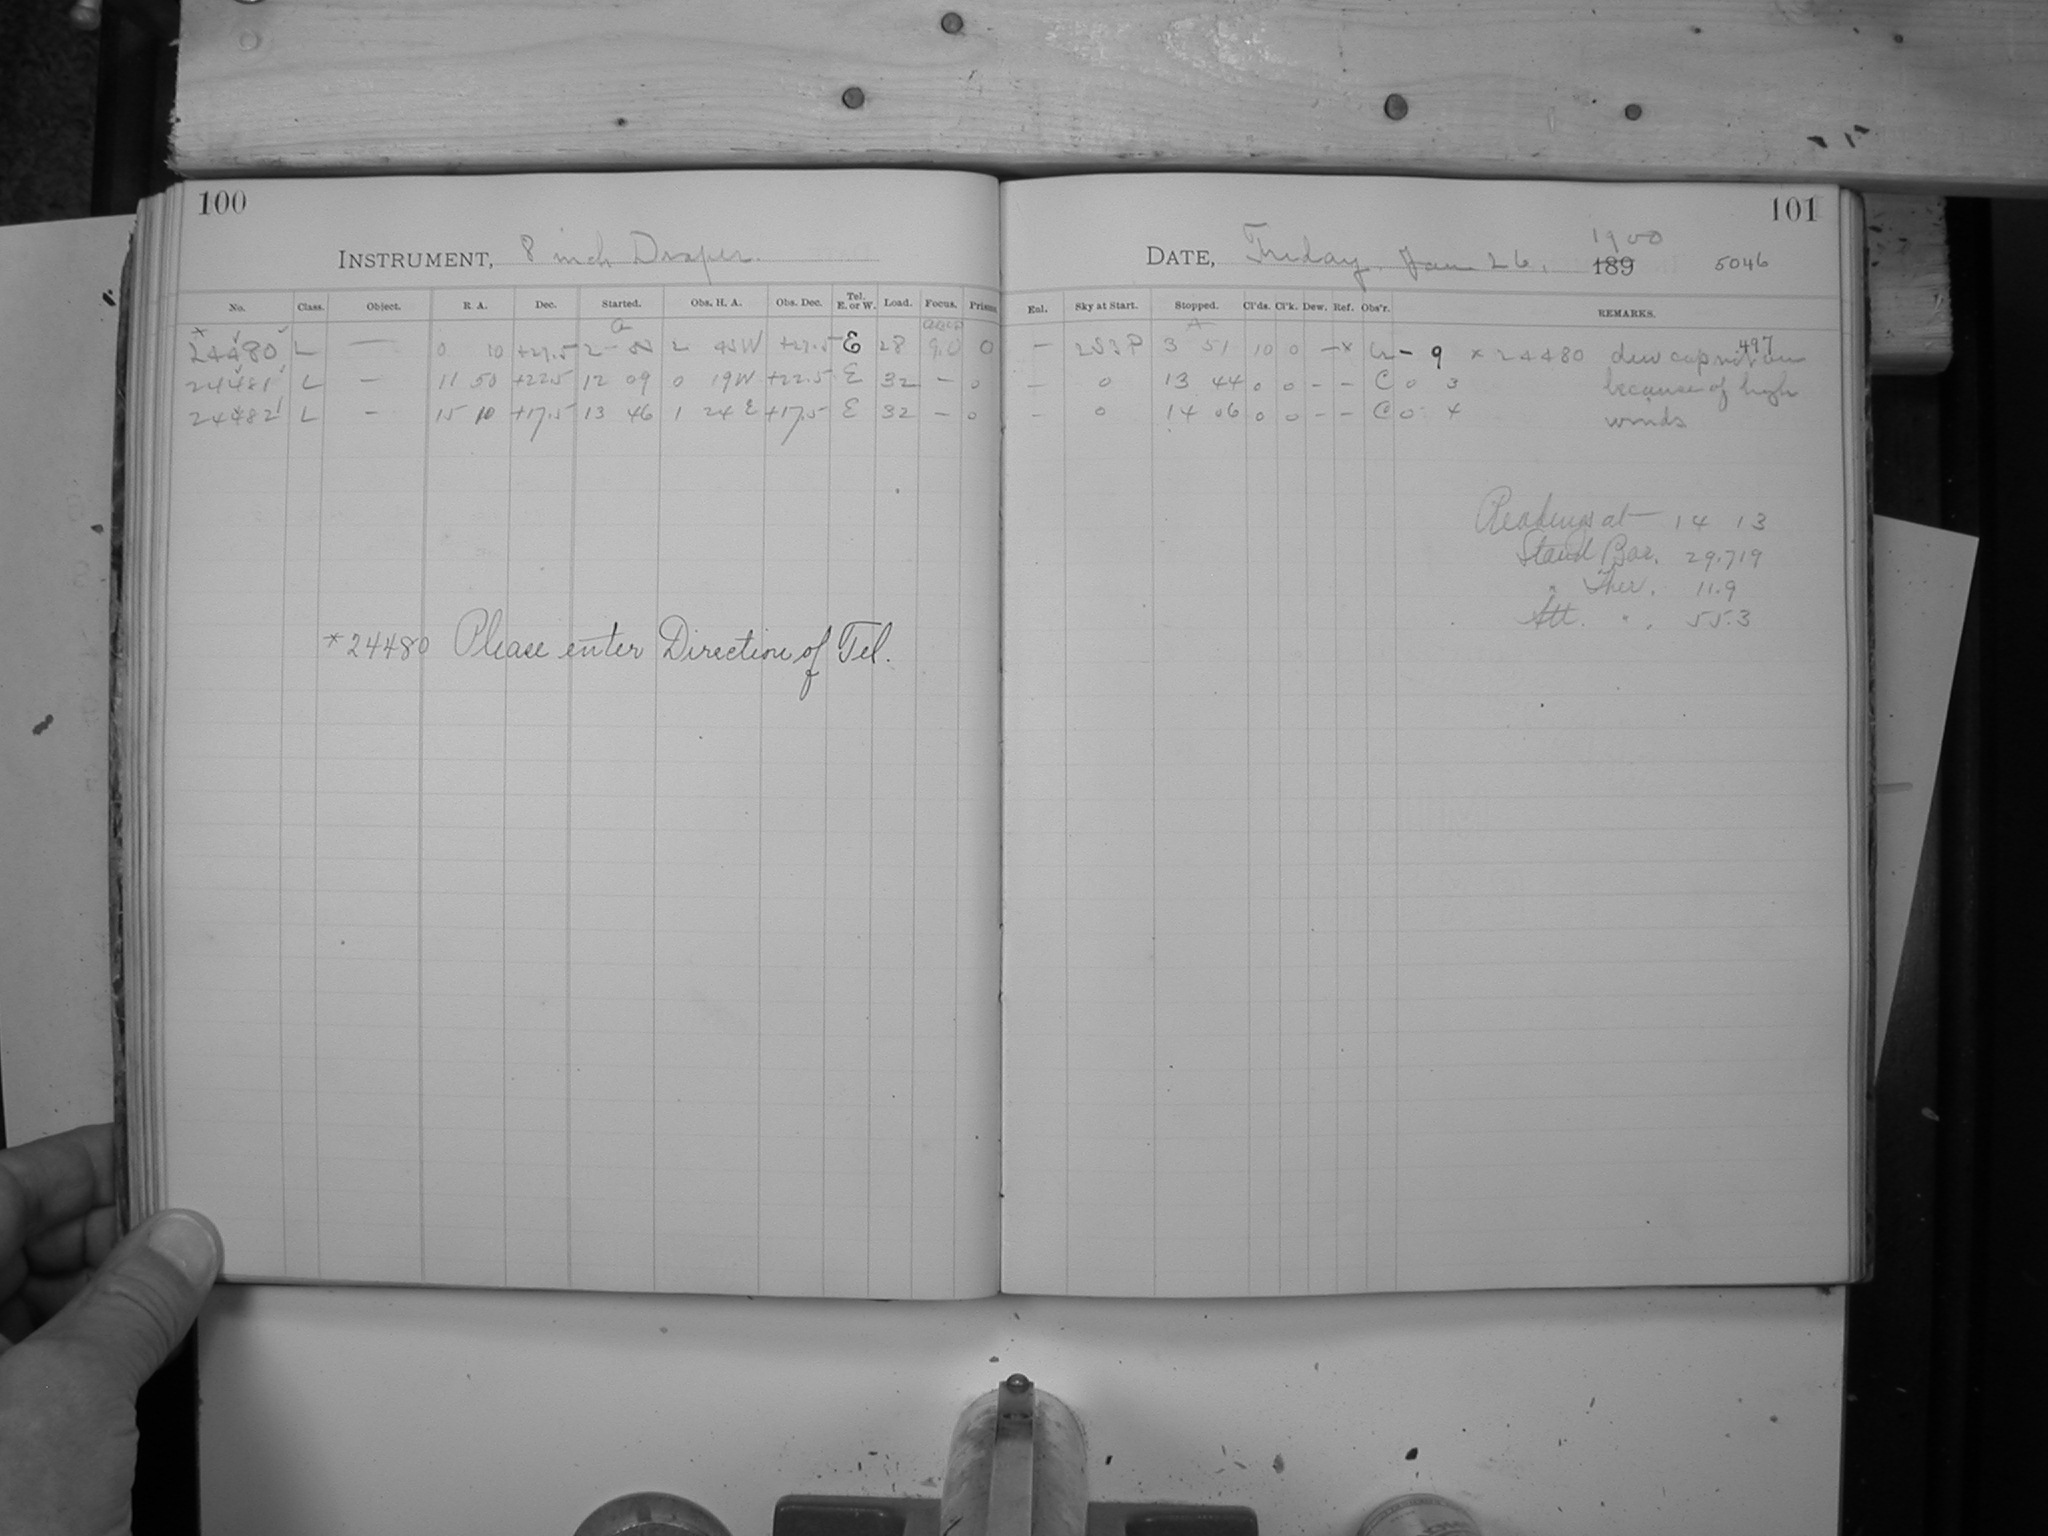 100
INSTRUMENT, 8 inch Draper.
No. Class. Object. R. A. Dec. Started. Obs. H. A. Obs. Dec. Tel. E. or W. Load. Focus.
24480 L — 0 10 +27.5 2 45W +27.5 E 28 9.0 0
24481 L — 11 50 +22.5 12 09 0 19W +22.5 E 32 – 0
24482 L — 15 10 +17.5 13 46 1 24 E +17.5 E 32 – 0
*24480 Please enter Direction of Tel.
101
DATE, Friday, Jan 26, 1900
189
5046
Enl. Sky at Start. Stopped. Cl'ds. Cl'k. Dew. Ref. Obs'r. REMARKS.
— 3 51 10 0 – x – 9 x 24480 dew cap not on
497
— 0 13 44 0 0 – – C 0 3 because of high
— 0 14 06 0 0 – – C 0 4 winds
Readings at 14 13
Stand Bar. 29.719
" Ther. 11.9
Att. " . 55.3